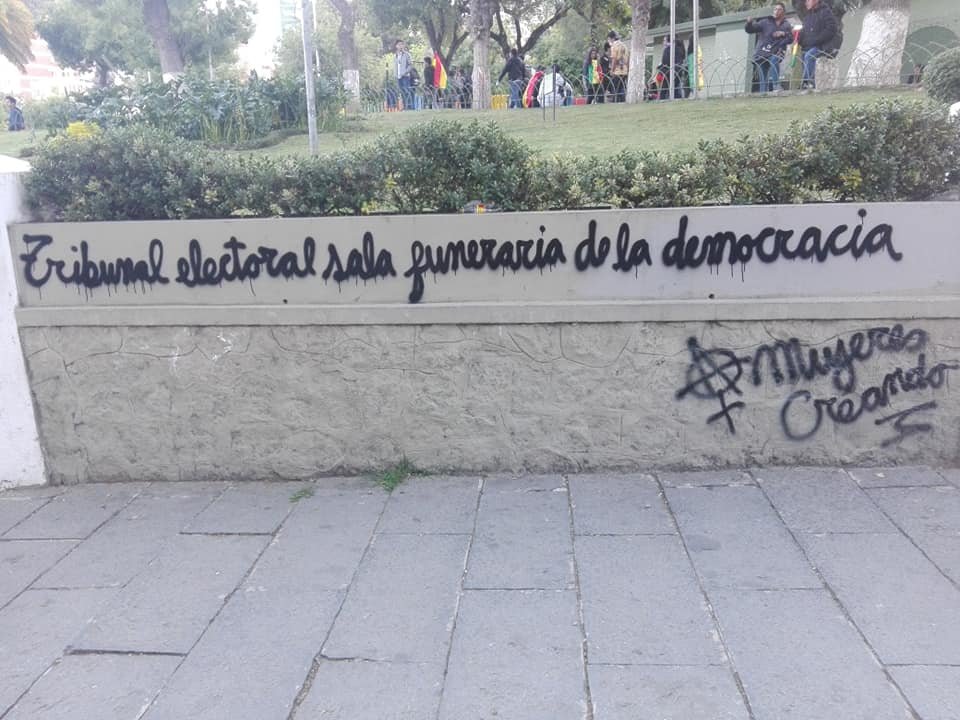 Tribunal electoral sala funeraria de la democracia
Mujeres
Creando